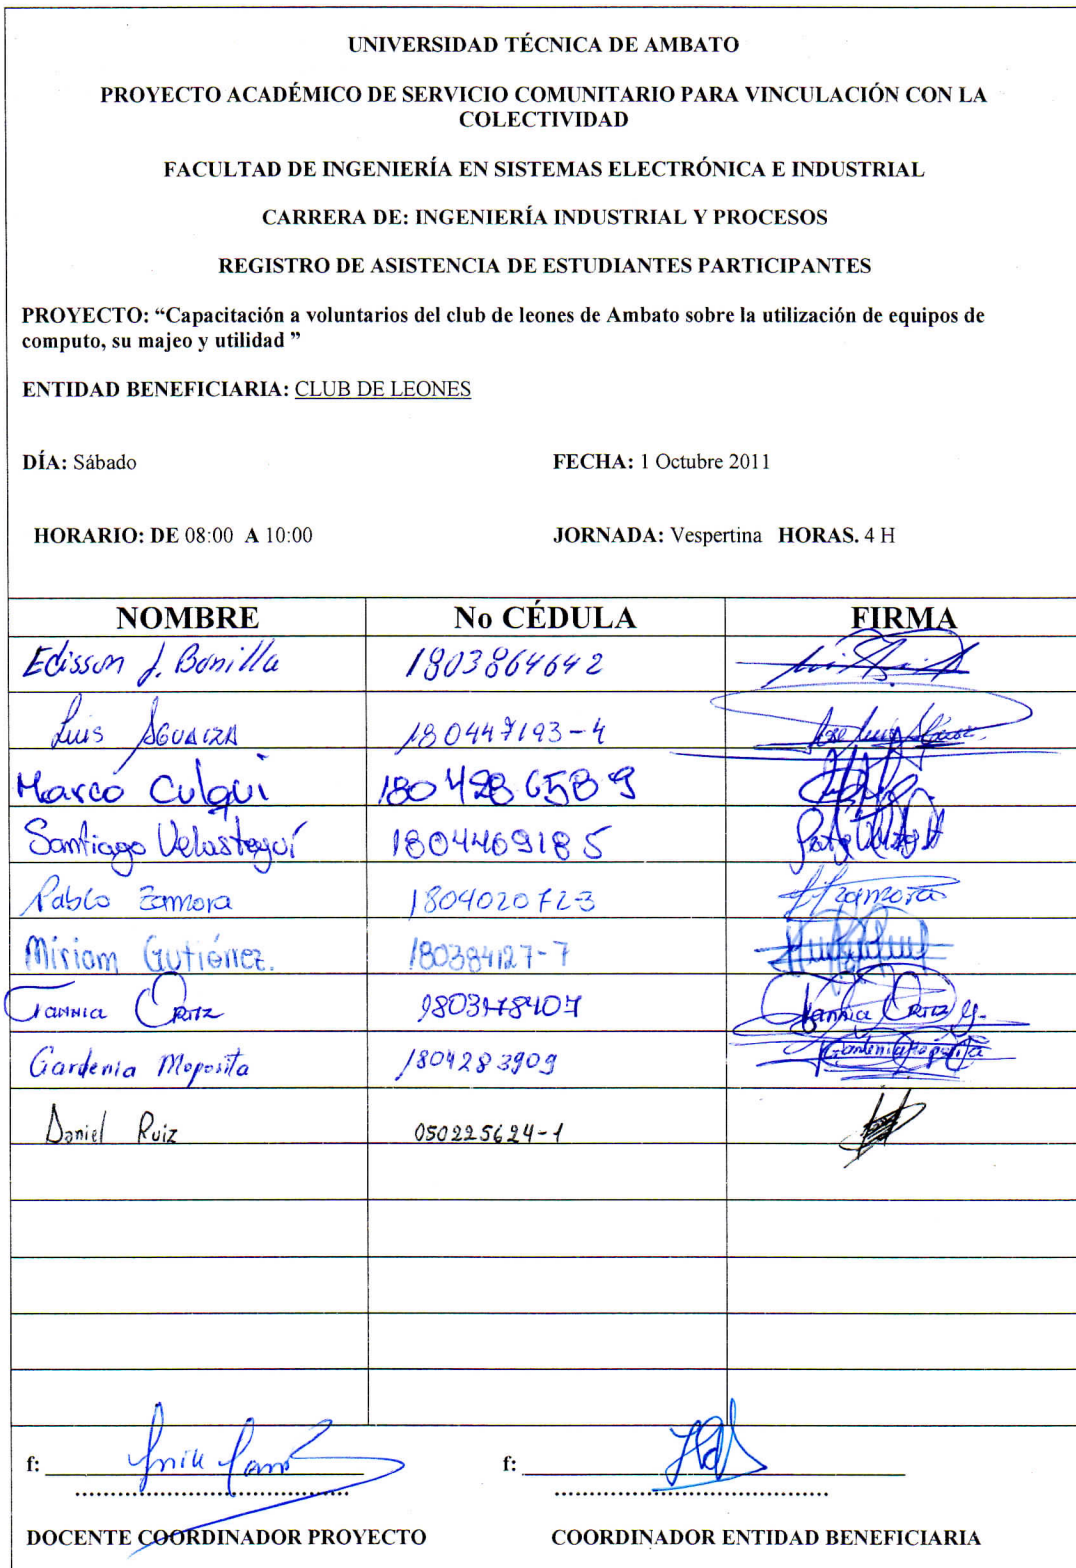 UNIVERSIDAD TÉCNICA DE AMBATO
PROYECTO ACADÉMICO DE SERVICIO COMUNITARIO PARA VINCULACIÓN CON LA
COLECTIVIDAD
FACULTAD DE INGENIERÍA EN SISTEMAS ELECTRÓNICA E INDUSTRIAL
CARRERA DE: INGENIERÍA INDUSTRIAL Y PROCESOS
REGISTRO DE ASISTENCIA DE ESTUDIANTES PARTICIPANTES
PROYECTO: “Capacitación a voluntarios del club de leones de Ambato sobre la utilización de equipos de
computo, su majeo y utilidad ”
ENTIDAD BENEFICIARIA: CLUB DE LEONES
DÍA: Sábado FECHA: 1 Octubre 2011
HORARIO: DE 08:00 A 10:00 JORNADA: Vespertina HORAS. 4 H
NOMBRE No CÉDULA FIRMA
Edisson J. Bonilla 1803864642
Luis AGUAIZA 180447193-4
Marco Culqui 1804286589
Santiago Velasteguí 1804469185
Pablo Zamora 180402072-3 Zamora
Miriam Gutiérrez. 180384127-7
Tannia ORTIZ 1803478407 Tannia ORTIZ
Gardenia Moposita 1804283909 Gardenia Moposita
Daniel Ruiz 050225624-1
f: f:
DOCENTE COORDINADOR PROYECTO COORDINADOR ENTIDAD BENEFICIARIA